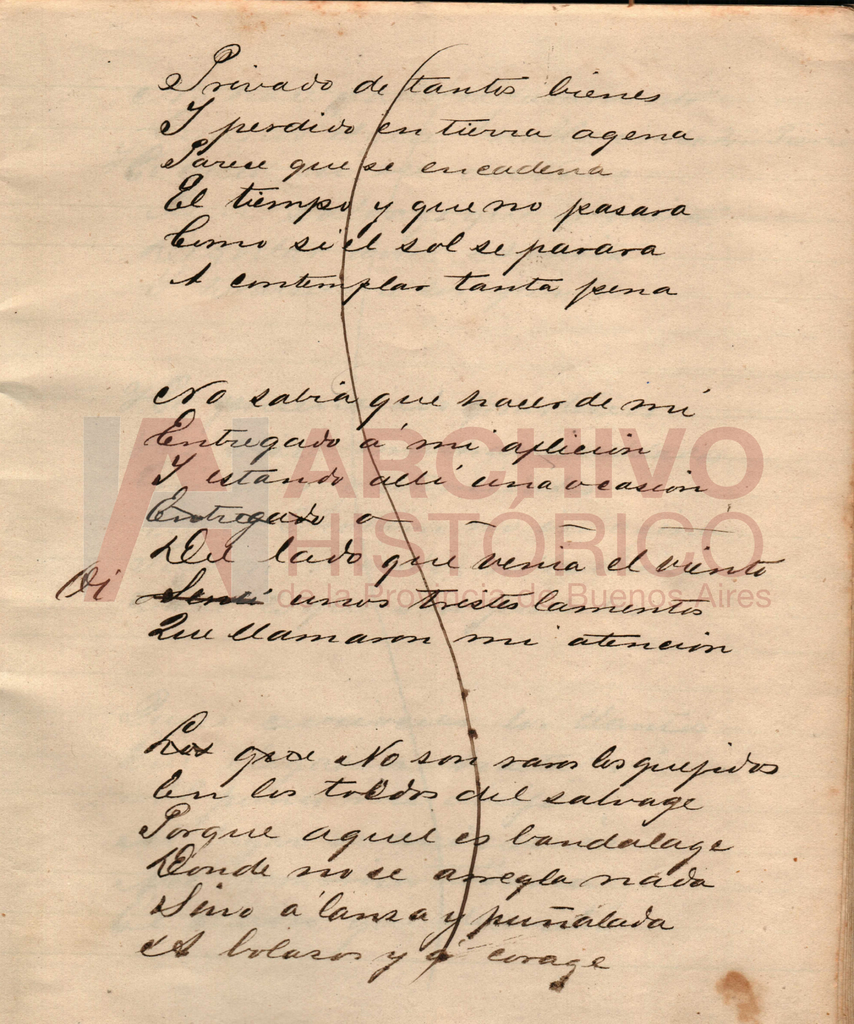 Privado de tantos bienes
Y perdido en tierra agena
Parese que se encadena
El tiempo y que no pasara
Como si el sol se parara
A contemplar tanta pena
No sabia que hacer de mi
Entregado á mi aflicion
Y estando allí una ocasion
Entregado a
Del lado que venia el viento
Oi Sentí unos tristes lamentos
Que llamaron mi atencion
Los que No son raros los quejidos
En los toldos del salvage
Porque aquel es bandalage
Donde no se arregla nada
Sino á lanza y puñalada
A bolasos y á corage
ARCHIVO
HISTÓRICO
de la Provincia de Buenos Aires